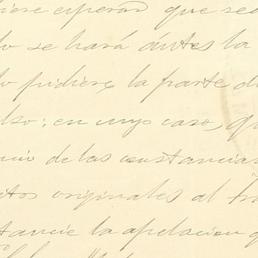 esperar que se
do se hará ántes la
do pidiere la parte d
en cuyo caso, q
de las constancias
itos originales al tri
stancie la apelacion q